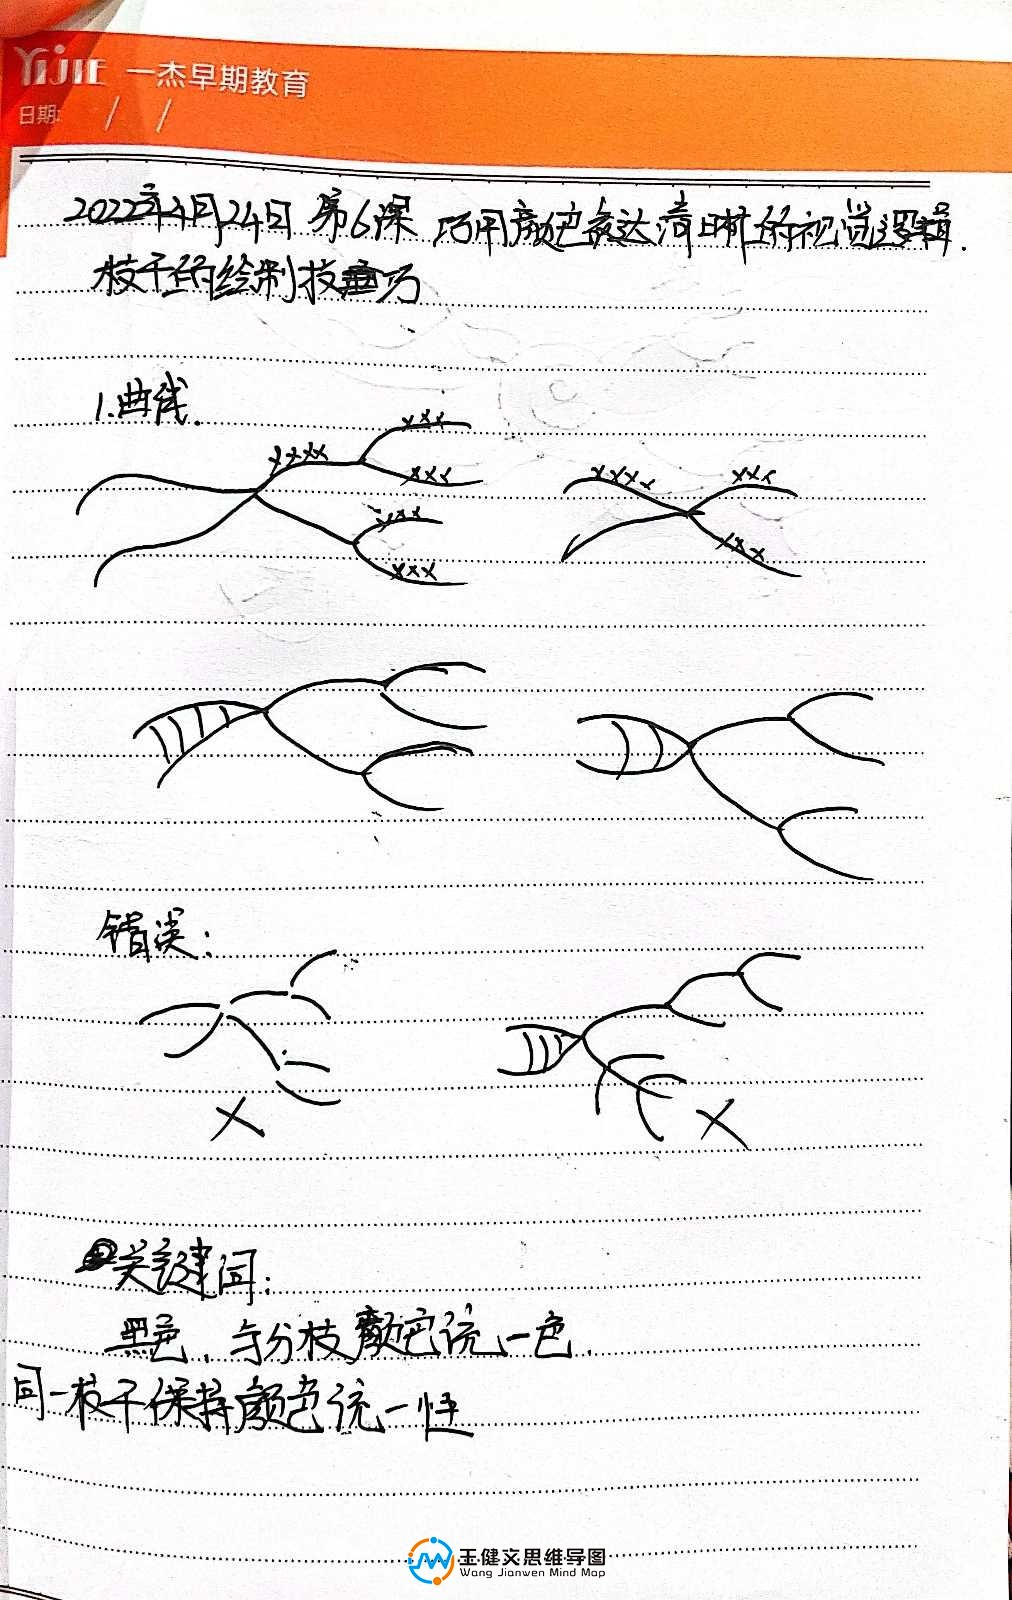 YiJIE 一杰早期教育
日期: / /
2022年4月24日 第6课 巧用颜色表达清晰的视觉逻辑.
枝干的绘制技巧
1.曲线.
xxxx xxx
xxx
xxx
xxx
xxxx xxx
xxx
错误:
X X
关键词:
黑色、与分枝颜色统一色.
同一枝干保持颜色统一性
王健文思维导图
Wang Jianwen Mind Map